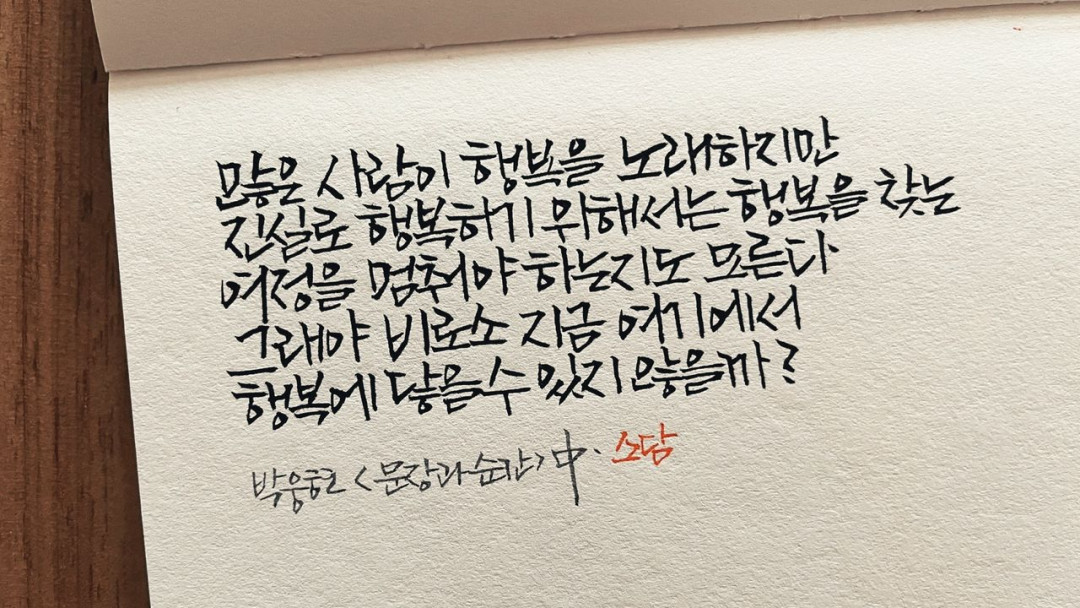 많은 사람이 행복을 노래하지만
진실로 행복하기 위해서는 행복을 찾는
여정을 멈춰야 하는지도 모른다
그래야 비로소 지금 여기에서
행복에 닿을 수 있지 않을까?
박웅현 <문장과 순간> 中. 소담